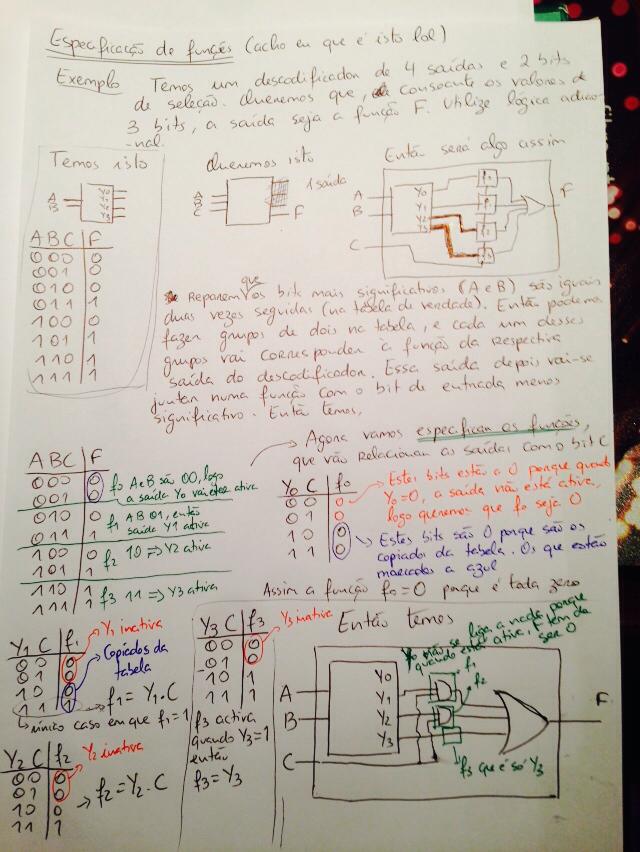 Especificação de funções (acho eu que é isto lol)
Exemplo Temos um descodificador de 4 saídas e 2 bits
de seleção. Queremos que, consoante os valores de
3 bits, a saída seja a função F. Utilize lógica adicio-
nal.
Temos isto
A
B
Y0
Y1
Y2
Y3
Queremos isto
A
B
C
1 saída
F
Então será algo assim
A
B
C
Y0
Y1
Y2
Y3
F
A B C F
0 0 0 0
0 0 1 0
0 1 0 0
0 1 1 1
1 0 0 0
1 0 1 1
1 1 0 1
1 1 1 1
Reparem que os bits mais significativos (A e B) são iguais
duas vezes seguidas (na tabela de verdade). Então podemos
fazer grupos de dois na tabela, e cada um desses
grupos vai corresponder à função da respectiva
saída do descodificador. Essa saída depois vai-se
juntar numa função com o bit de entrada menos
significativo. Então temos,
Agora vamos especificar as funções,
que vão relacionar as saídas com o bit C
A B C F
0 0 0 0 f0 A e B são 00, logo
0 0 1 0 a saída Y0 vai estar ativa
0 1 0 0 f1 AB 01, então
0 1 1 1 saída Y1 ativa
1 0 0 0 f2 10 => Y2 ativa
1 0 1 1
1 1 0 1 f3 11 => Y3 ativa
1 1 1 1
Y0 C f0
0 0 0
0 1 0
1 0 0
1 1 0
Estes bits estão a 0 porque quando
Y0=0, a saída não está ativa,
logo queremos que f0 seja 0
Estes bits são 0 porque são os
copiados da tabela. Os que estão
marcados a azul
Assim a função f0=0 porque é tada zero
Y1 C f1
0 0 0
0 1 0
1 0 0
1 1 1
Y1 inativa
Copiados da
tabela
f1=Y1.C
único caso em que f1=1
Y2 C f2
0 0 0
0 1 0
1 0 0
1 1 1
Y2 inativa
f2=Y2.C
Y3 C f3
0 0 0
0 1 0
1 0 1
1 1 1
Y3 inativa
f3 activa
quando Y3=1
então
f3=Y3
Então temos
Y0 não se liga a nada porque
quando está ativa, F tem de
ser 0
A
B
C
Y0
Y1
Y2
Y3
f1
f2
F
f3 que é só Y3